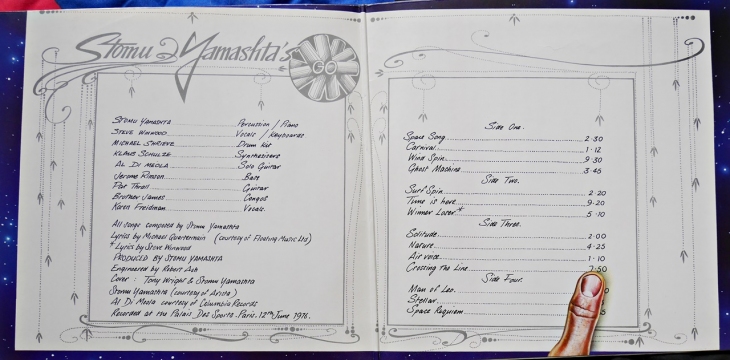 Stomu Yamashta's
GO
Stomu Yamashta Percussion / Piano
Steve Winwood Vocals / Keyboards
Michael Shrieve Drum Kit
Klaus Schulze Synthesizers
Al Di Meola Solo Guitar
Jerome Rimson Bass
Pat Thrall Guitar
Brother James Congos
Karen Freidman Vocals
All songs composed by Stomu Yamashta
Lyrics by Michael Quartermain (courtesy of Floating Music Ltd)
+ Lyrics by Steve Winwood
PRODUCED BY STOMU YAMASHTA
Engineered by Robert Ash
Cover : Tony Wright & Stomu Yamashta
Stomu Yamashta (courtesy of Arista)
Al Di Meola courtesy of Columbia Records
Recorded at the Palais Des Sports. Paris. 12th June 1976.
Side One.
Space Song 2·30
Carnival 1·12
Wind Spin 9·30
Ghost Machine 3·45
Side Two.
Surf Spin 2·20
Time is here 9·20
Winner Loser + 5·10
Side Three.
Solitude 2·00
Nature 4·25
Air voice 1·10
Crossing the Line 7·50
Side Four.
Man of Leo
Stellar
Space Requiem